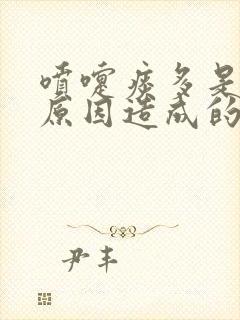 喷嚏痰多是
原因造成的
尹丰